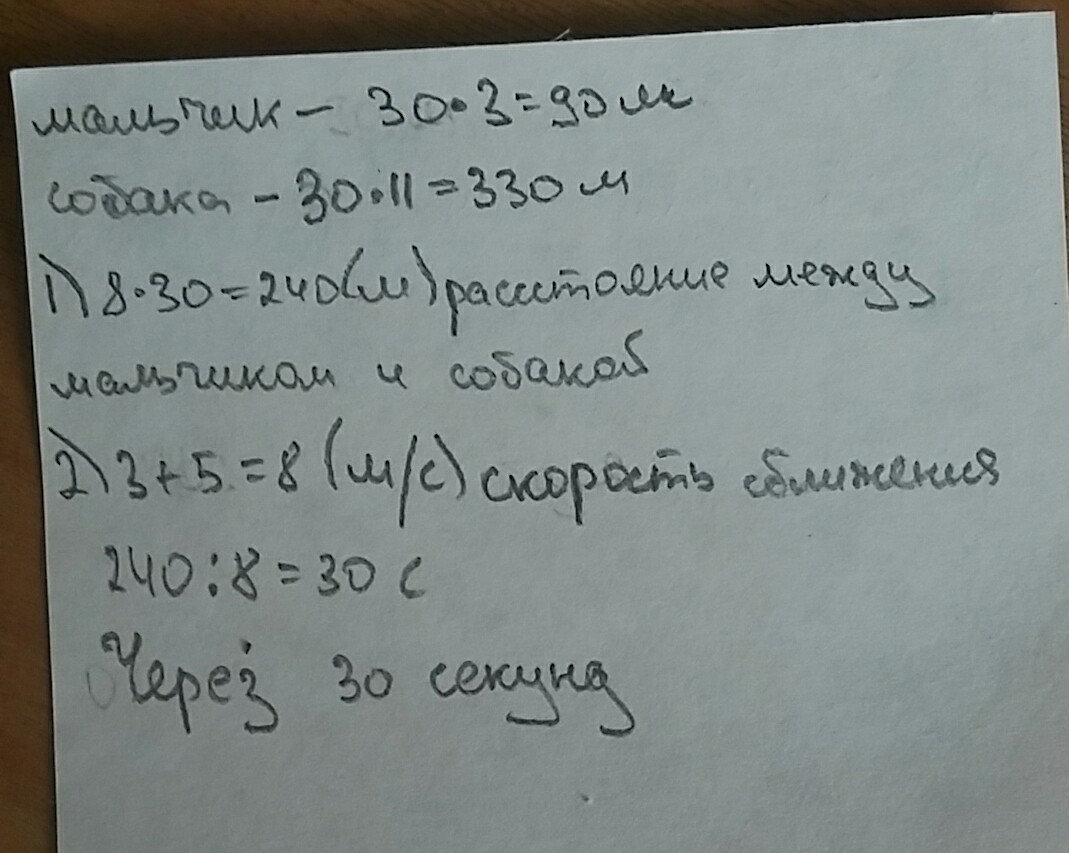 мальчик - 30·3=90 м
собака - 30·11=330 м
1) 8·30=240(м) расстояние между
мальчиком и собакой
2) 3+5=8 (м/с) скорость сближения
240:8=30 с
Через 30 секунд